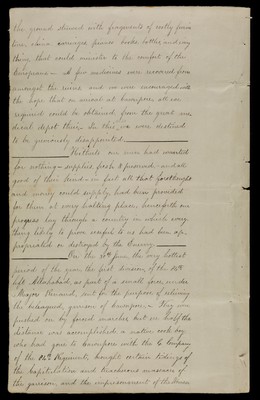 the ground strewed with fragments of costly furni
ture, china, carriages, pianos books, bottles and any
thing that could minister to the comfort of the
Europeans — A few medicines were recovered from
amongst the ruins and we were encouraged with
the hope that on arrival at Cawnpore all we
required could be obtained from the great me
dical depôt there, In this we were destined
to be grievously disappointed.
Hitherto our men had wanted
for nothing — supplies, fresh & preserved — and all
good of their kind — in fact all that forethought
and money could supply, had been provided
for them at every halting place, henceforth our
progress lay through a country in which every
thing likely to prove useful to us had been ap-
propriated or destroyed by the Enemy.
On the 30th June, the very hottest
period of the year, the first division of the 84th
left Allahabad, as part of a small force, under
Major Renaud, sent for the purpose of relieving
the beleaguered garrison of Cawnpore, They were
pushed on by forced marches but ere half the
distance was accomplished a native cook boy
who had gone to Cawnpore with the Company
of the 84th Regiment, brought certain tidings of
the Capitulation and treacherous massacre of
the garrison, and the imprisonment of the Women